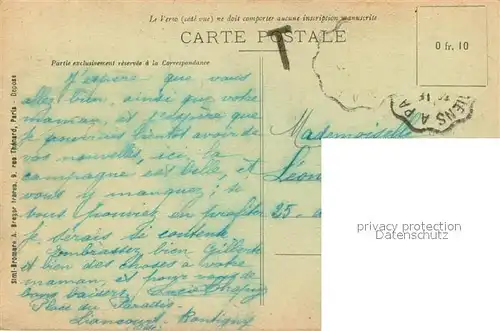 Le Verso (côté vue) ne doit comporter aucune inscription manuscrite
CARTE POSTALE
T
0 fr. 10
Partie exclusivement réservée à la Correspondance
J'espère que vous
allez bien, ainsi que votre
maman, et j'espère que
je pourrais bientôt avoir de
vos nouvelles, ici la
campagne est belle, et
vous y manquez; si
vous pouviez en profiter
je serais si contente
Embrassez bien Gilberte
et bien des choses à votre
maman, et pour vous de
bons baisers,
Place du Paradis
Liancourt
Mademoiselle
Léon
25
IENS A PA
Simi-Bromure A. Breger frères, 9, rue Thénard, Paris
privacy protection
Datenschutz